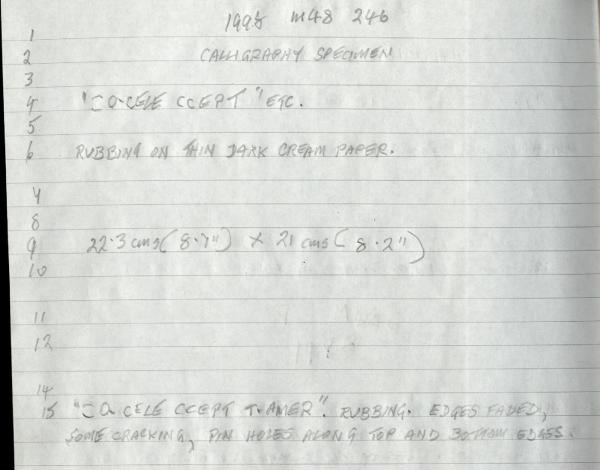 1998 M48 246
1
2 CALLIGRAPHY SPECIMEN
3
4 "CO-CELE CCEPT" ETC.
5
6 RUBBING ON THIN DARK CREAM PAPER.
8
9 22.3 cms (8.7") X 21 cms (8.2")
10
11
12
14
15 "CO CELE CCEPT T. AMER". RUBBING. EDGES FADED,
SOME CRACKING, PIN HOLES ALONG TOP AND BOTTOM EDGES.